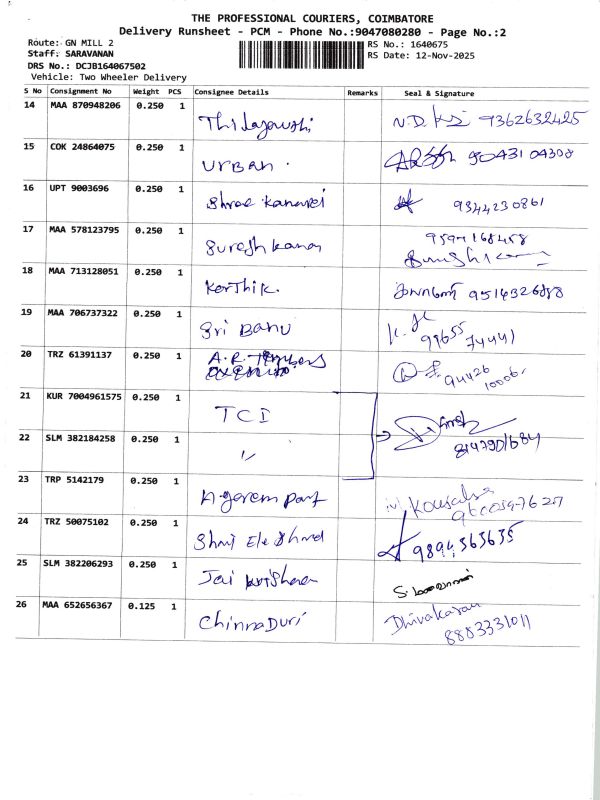 THE PROFESSIONAL COURIERS, COIMBATORE
Delivery Runsheet - PCM - Phone No.:9047080280 - Page No.:2
Route: GN MILL 2 RS No.: 1640675
Staff: SARAVANAN RS Date: 12-Nov-2025
DRS No.: DCJB164067502
Vehicle: Two Wheeler Delivery
S No Consignment No Weight PCS Consignee Details Remarks Seal & Signature
14 MAA 870948206 0.250 1 9362632425
15 COK 24864075 0.250 1 Urban. 9043104308
16 UPT 9003696 0.250 1 Shree 9344230861
17 MAA 578123795 0.250 1
18 MAA 713128051 0.250 1 Karthik. 9514326888
19 MAA 706737322 0.250 1 Sri Banu 99655
74441
20 TRZ 61391137 0.250 1 A.R. 94426
10006.
21 KUR 7004961575 0.250 1 TCI
22 SLM 382184258 0.250 1 "
23 TRP 5142179 0.250 1 Kousalya
24 TRZ 50075102 0.250 1 9894563635
25 SLM 382206293 0.250 1 Jai Krishna
26 MAA 652656367 0.125 1 Chinnaduri Dhivakaran
8883331011